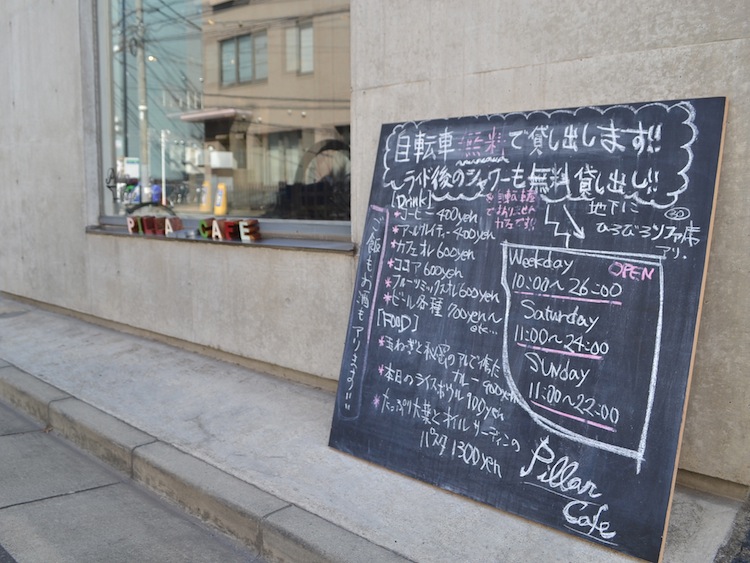 PILLAR CAFE
自転車無料で貸し出します!!
ライド後のシャワーも無料貸し出し!!
[Drink]
*コーヒー 400yen
*アールグレイティー 400yen
*カフェオレ 600yen
*ココア 600yen
*フルーツミックスオレ 600yen
*ビール各種 700yen〜
etc...
[FOOD]
*玉ねぎと秘密の
カレー 900yen
*本日のライスボウル 900yen
*たっぷり大葉とオイルサーディンの
パスタ 1300yen
ご飯もお酒もアリます!!!
自転車屋
でありません
カフェです!!
地下に
ひろびろソファ席
アリ.
OPEN
Weekday
10:00〜26:00
Saturday
11:00〜24:00
Sunday
11:00〜22:00
Pillar
Cafe